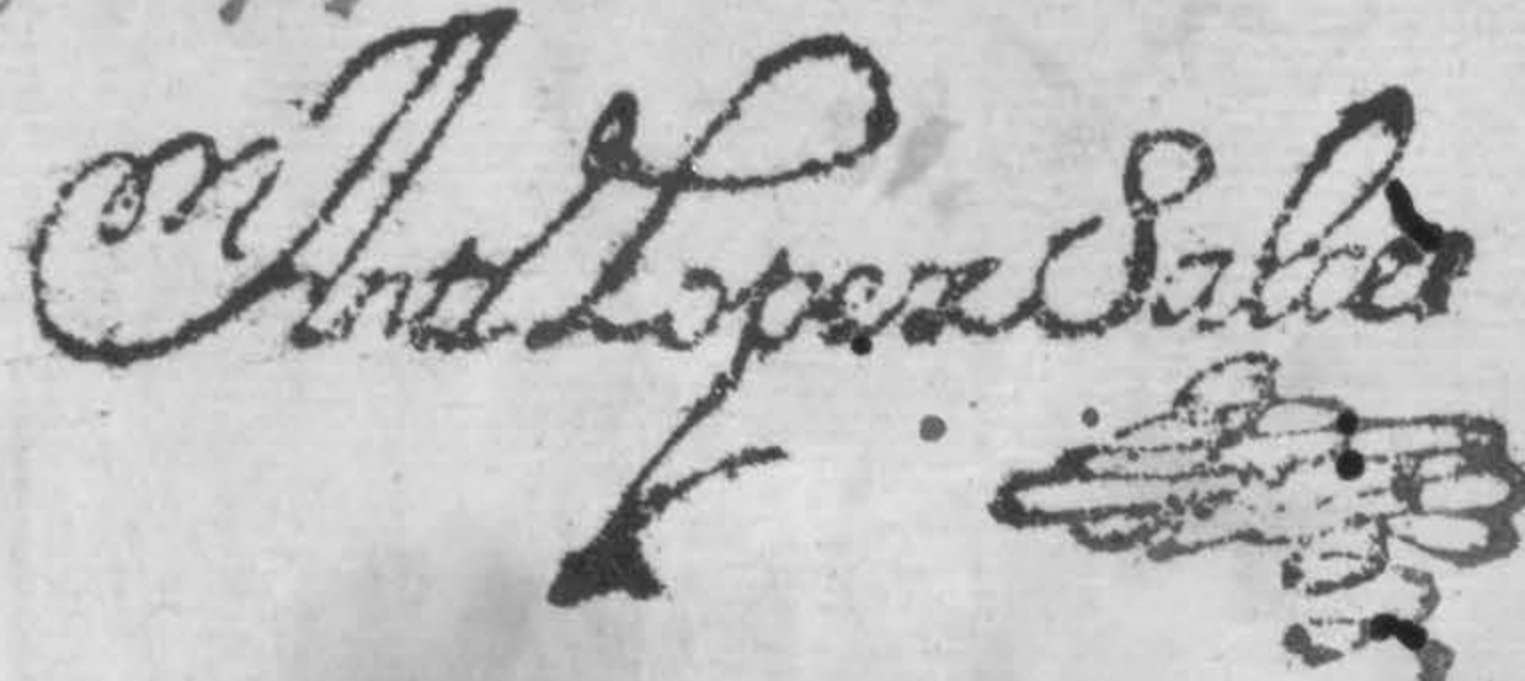 Antt Lopez Salce